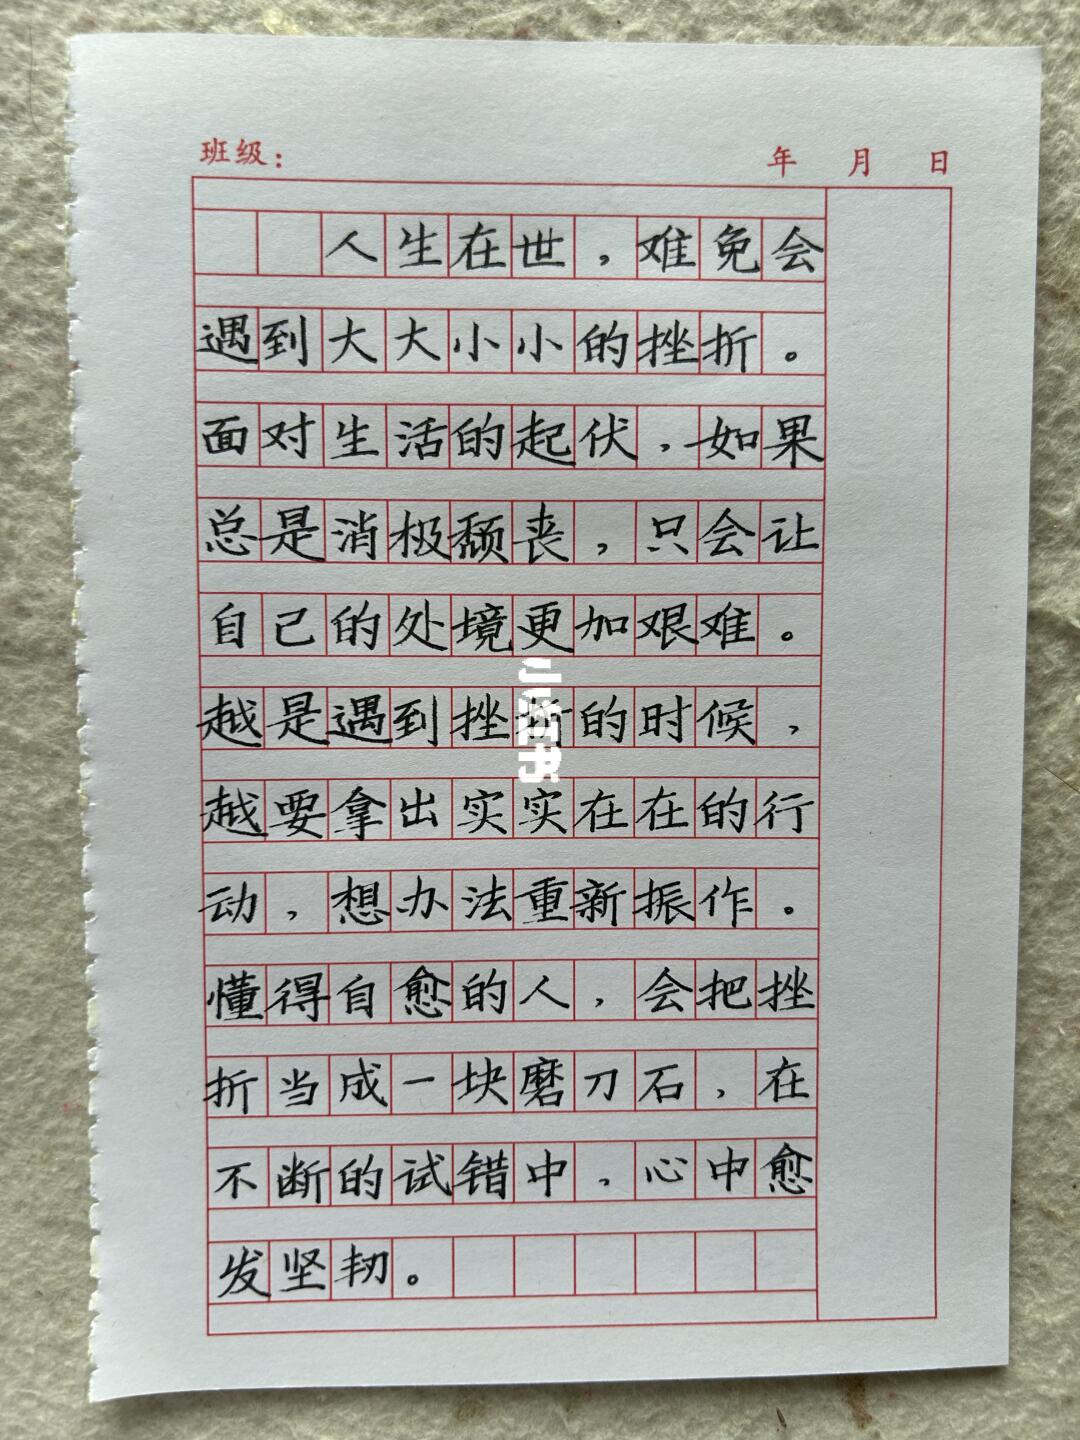 班级： 年 月 日
人生在世，难免会
遇到大大小小的挫折。
面对生活的起伏，如果
总是消极颓丧，只会让
自己的处境更加艰难。
越是遇到挫折的时候，
越要拿出实实在在的行
动，想办法重新振作。
懂得自愈的人，会把挫
折当成一块磨刀石，在
不断的试错中，心中愈
发坚韧。
小红书